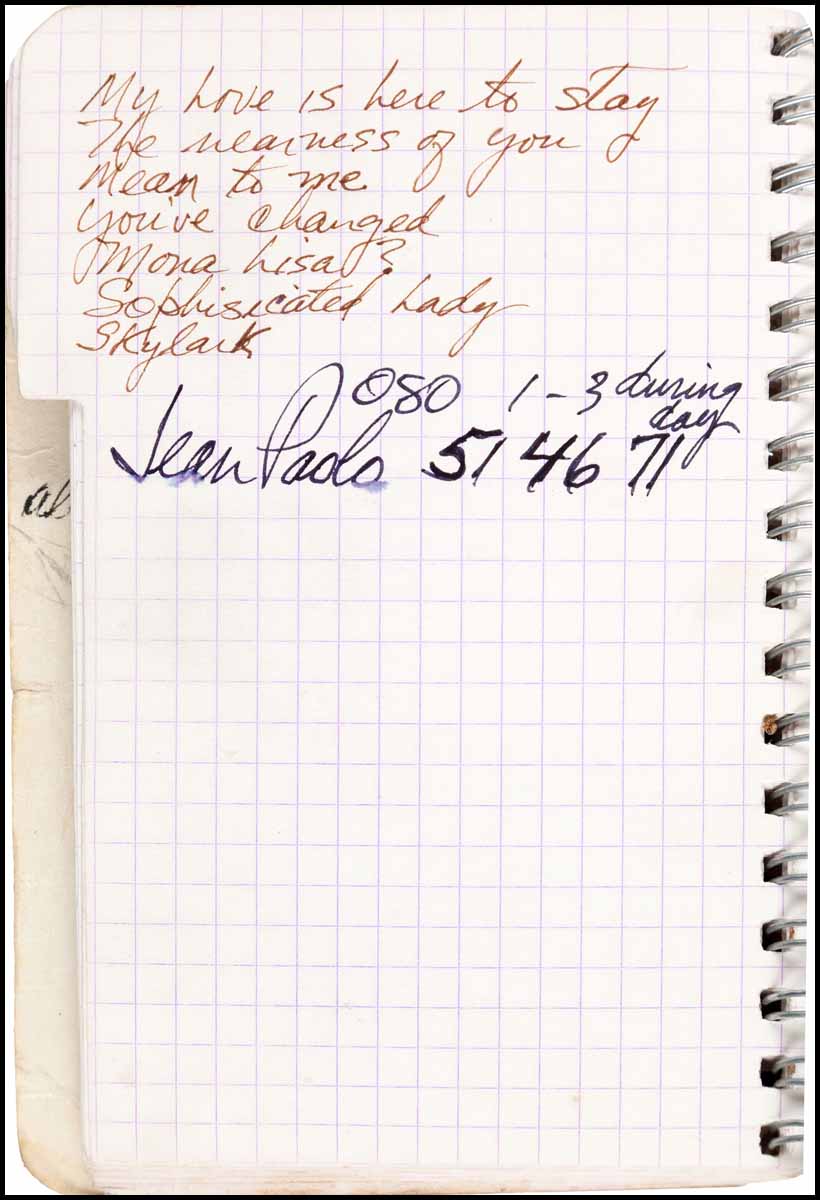 My Love is here to stay
The nearness of you
Mean to me
You've changed
Mona Lisa ?
Sophisicated Lady
Skylark
080 1-3 during
day
Jean Paolo 51 46 71